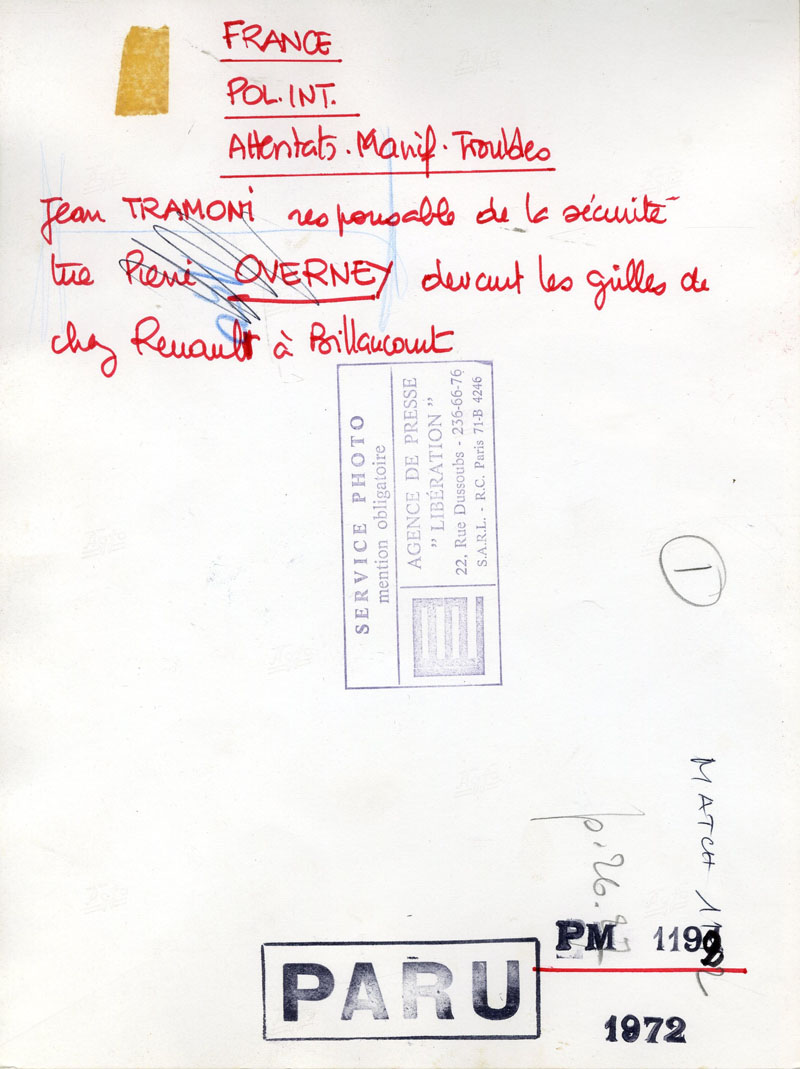 FRANCE
POL. INT.
Attentats. Manif. Troubles
Jean TRAMONI responsable de la sécurité
tue Pierre OVERNEY devant les grilles de
chez Renault à Billancourt
SERVICE PHOTO
mention obligatoire
AGENCE DE PRESSE
" LIBÉRATION "
22, Rue Dussoubs - 236-66-76
S.A.R.L. - R.C. Paris 71-B 4246
1
MATCH
p. 26.27
PM 1192
PARU
1972